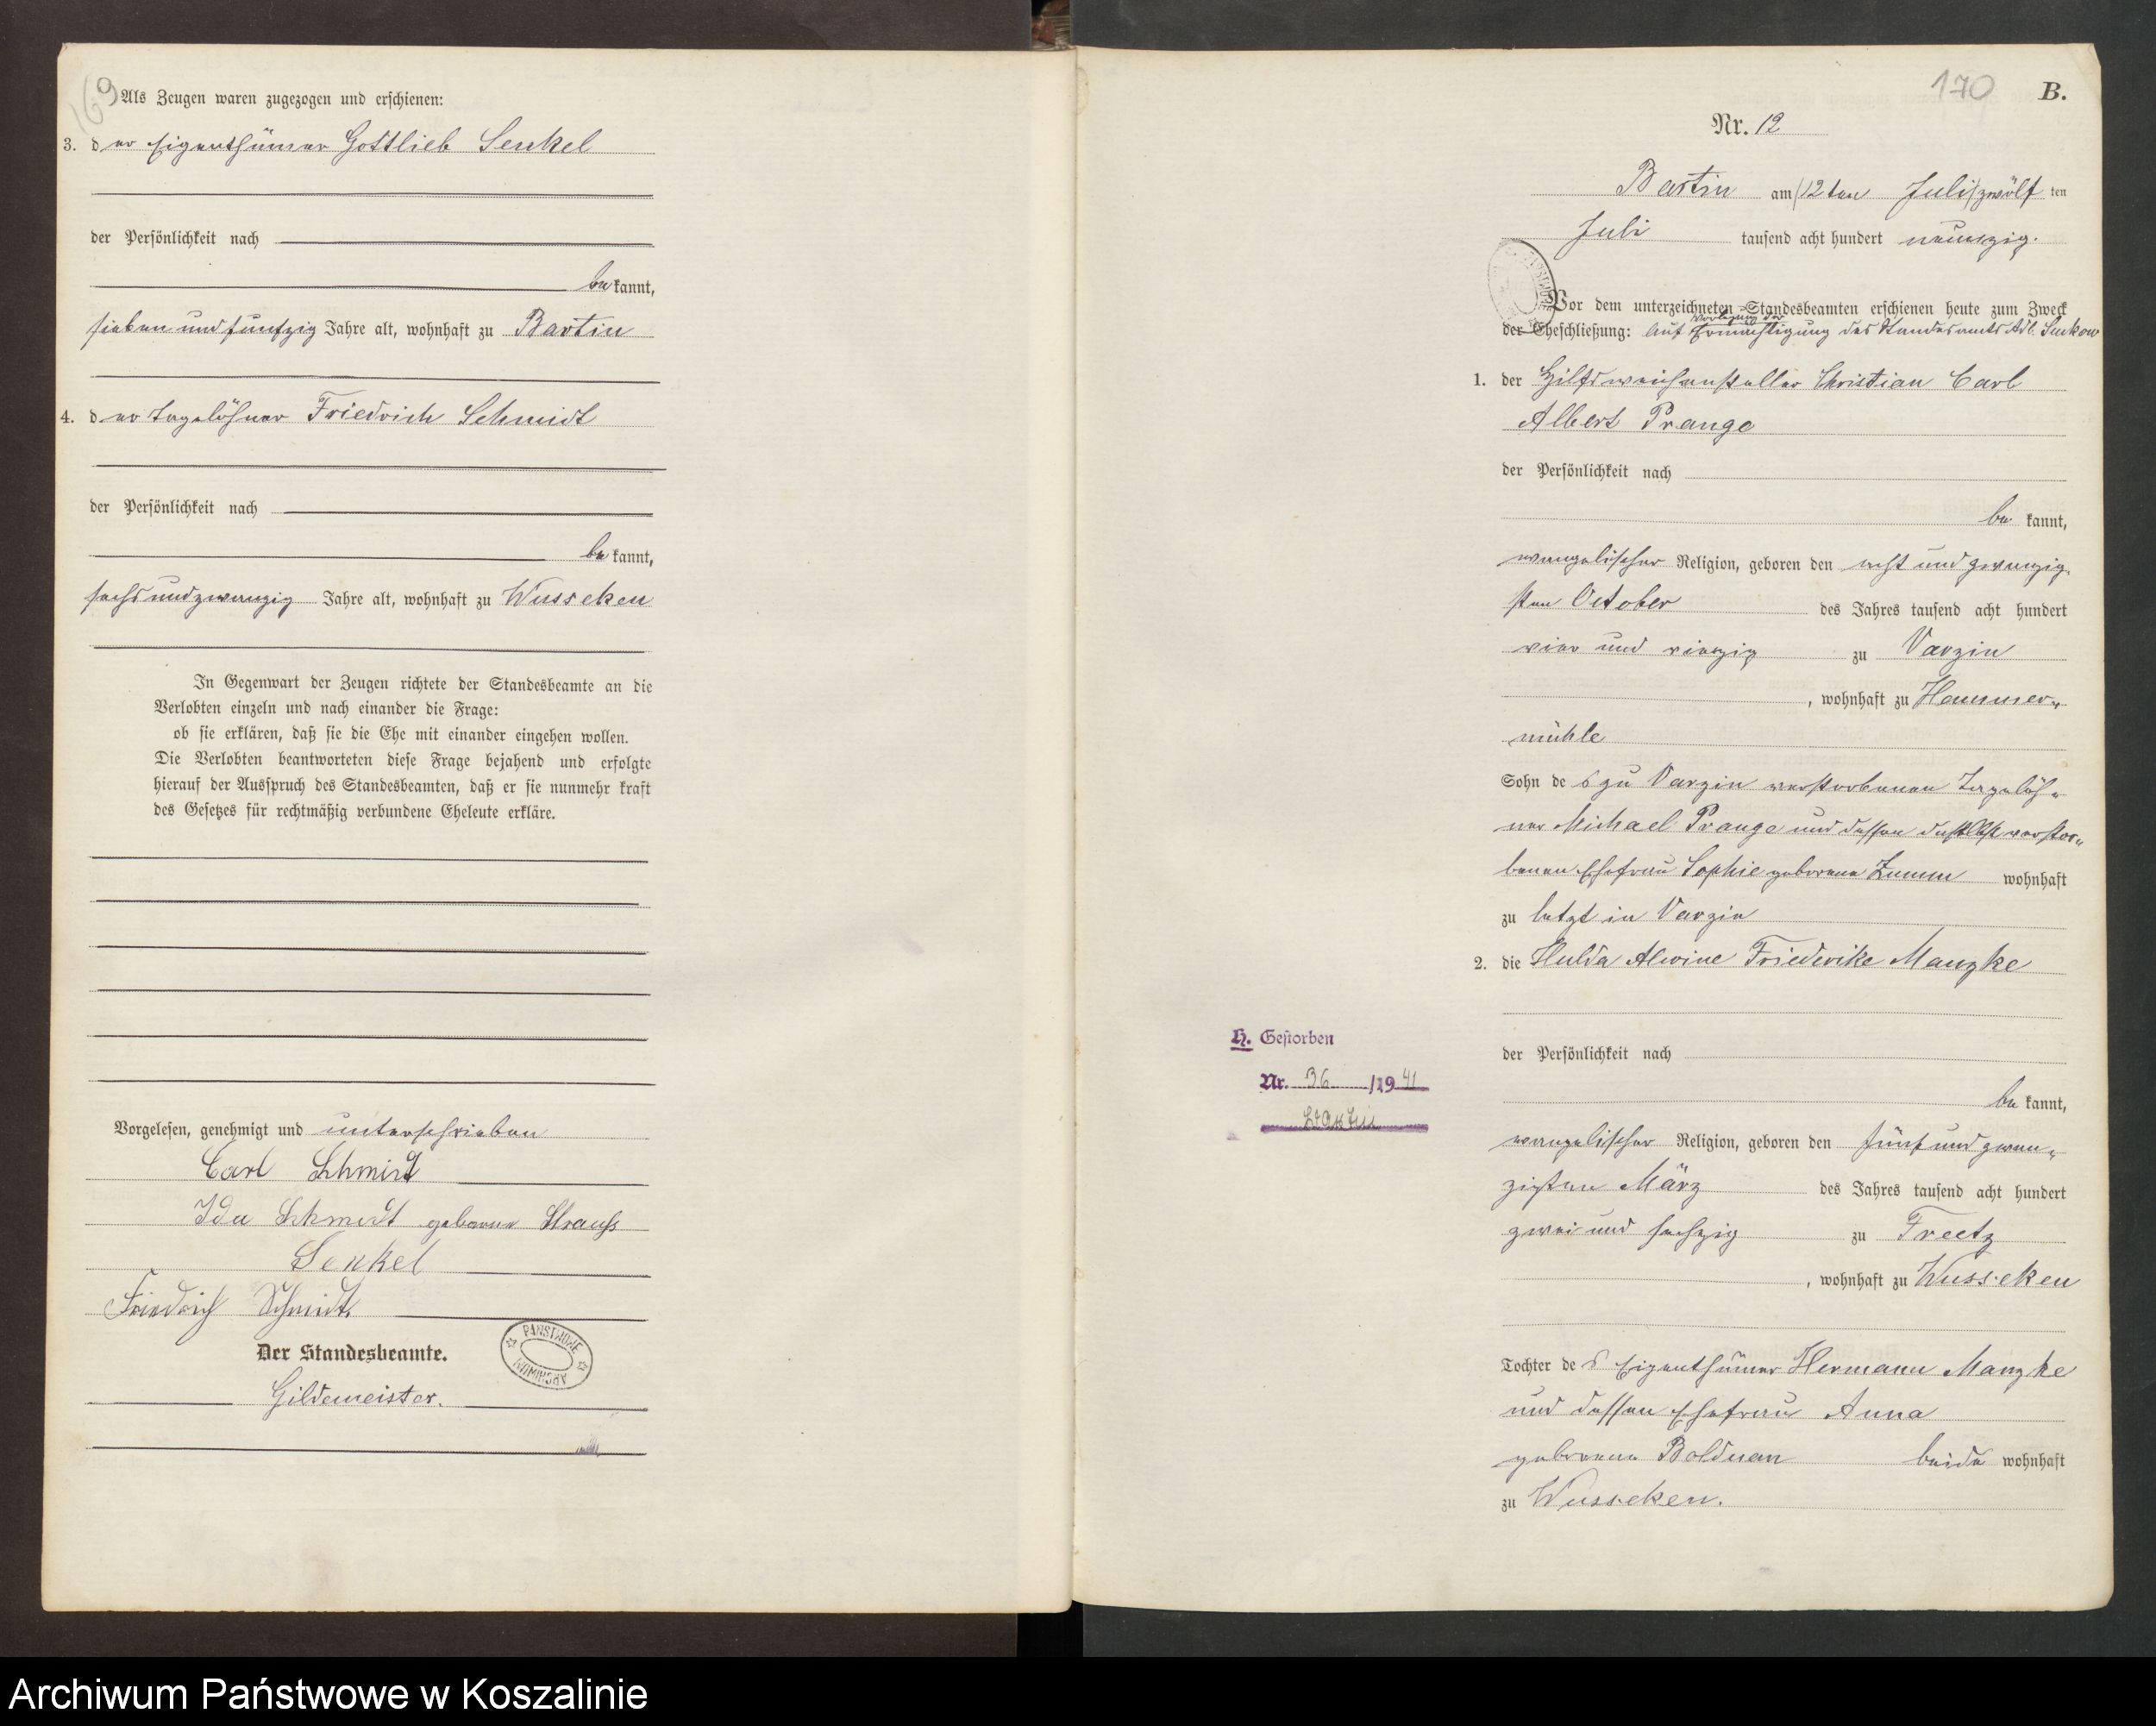 169
Als Zeugen waren zugezogen und erschienen:
3. der Eigenthümer Gottlieb Senkel
der Persönlichkeit nach
bekannt,
sieben und funfzig Jahre alt, wohnhaft zu Bartin
4. der Tagelöhner Friedrich Schmidt
der Persönlichkeit nach
bekannt,
sechs und zwanzig Jahre alt, wohnhaft zu Wusseken
In Gegenwart der Zeugen richtete der Standesbeamte an die
Verlobten einzeln und nach einander die Frage:
ob sie erklären, daß sie die Ehe mit einander eingehen wollen.
Die Verlobten beantworteten diese Frage bejahend und erfolgte
hierauf der Ausspruch des Standesbeamten, daß er sie nunmehr kraft
des Gesetzes für rechtmäßig verbundene Eheleute erkläre.
Vorgelesen, genehmigt und unterschrieben
Carl Schmidt
Ida Schmidt geborene Strauß
Senkel
Friedrich Schmidt
Der Standesbeamte.
Gildemeister.
PAŃSTWOWE ARCHIWUM
170 B.
Nr. 12
Bartin am (12ten Juli) zwölf ten
Juli tausend acht hundert neunzig.
Vor dem unterzeichneten Standesbeamten erschienen heute zum Zweck
Vorlegung der
der Eheschließung: Auf Ermächtigung des Standesamts Adl. Suckow
1. der Hilfsweichensteller Christian Carl
Albert Prange
der Persönlichkeit nach
be kannt,
evangelischer Religion, geboren den acht und zwanzig-
sten October des Jahres tausend acht hundert
vier und vierzig zu Varzin
, wohnhaft zu Hammer-
mühle
Sohn des zu Varzin verstorbenen Tagelöh-
ner Michael Prange und dessen daselbst verstor-
benen Ehefrau Sophie geborene Zumm wohnhaft
zu letzt in Varzin
2. die Hulda Alwine Friederike Manzke
der Persönlichkeit nach
be kannt,
evangelischer Religion, geboren den fünf und zwan-
zigsten März des Jahres tausend acht hundert
zwei und sechzig zu Treetz
, wohnhaft zu Wusseken
Tochter des Eigenthümer Hermann Manzke
und dessen Ehefrau Anna
geborene Balduan beide wohnhaft
zu Wusseken.
H. Gestorben
Nr. 36 /1941
Archiwum Państwowe w Koszalinie